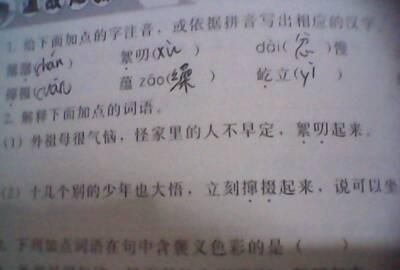 1. 给下面加点的字注音，或依据拼音写出相应的汉字
(chán) 絮叨(xù) dài(怠)慢
撺掇(cuān) 蕴 zǎo(缲) 屹立(yì)
2. 解释下面加点的词语。
(1) 外祖母很气恼，怪家里的人不早定，絮叨起来。
(2) 十几个别的少年也大悟，立刻撺掇起来，说可以坐
3. 下列加点词语在句中含褒义色彩的是（ ）